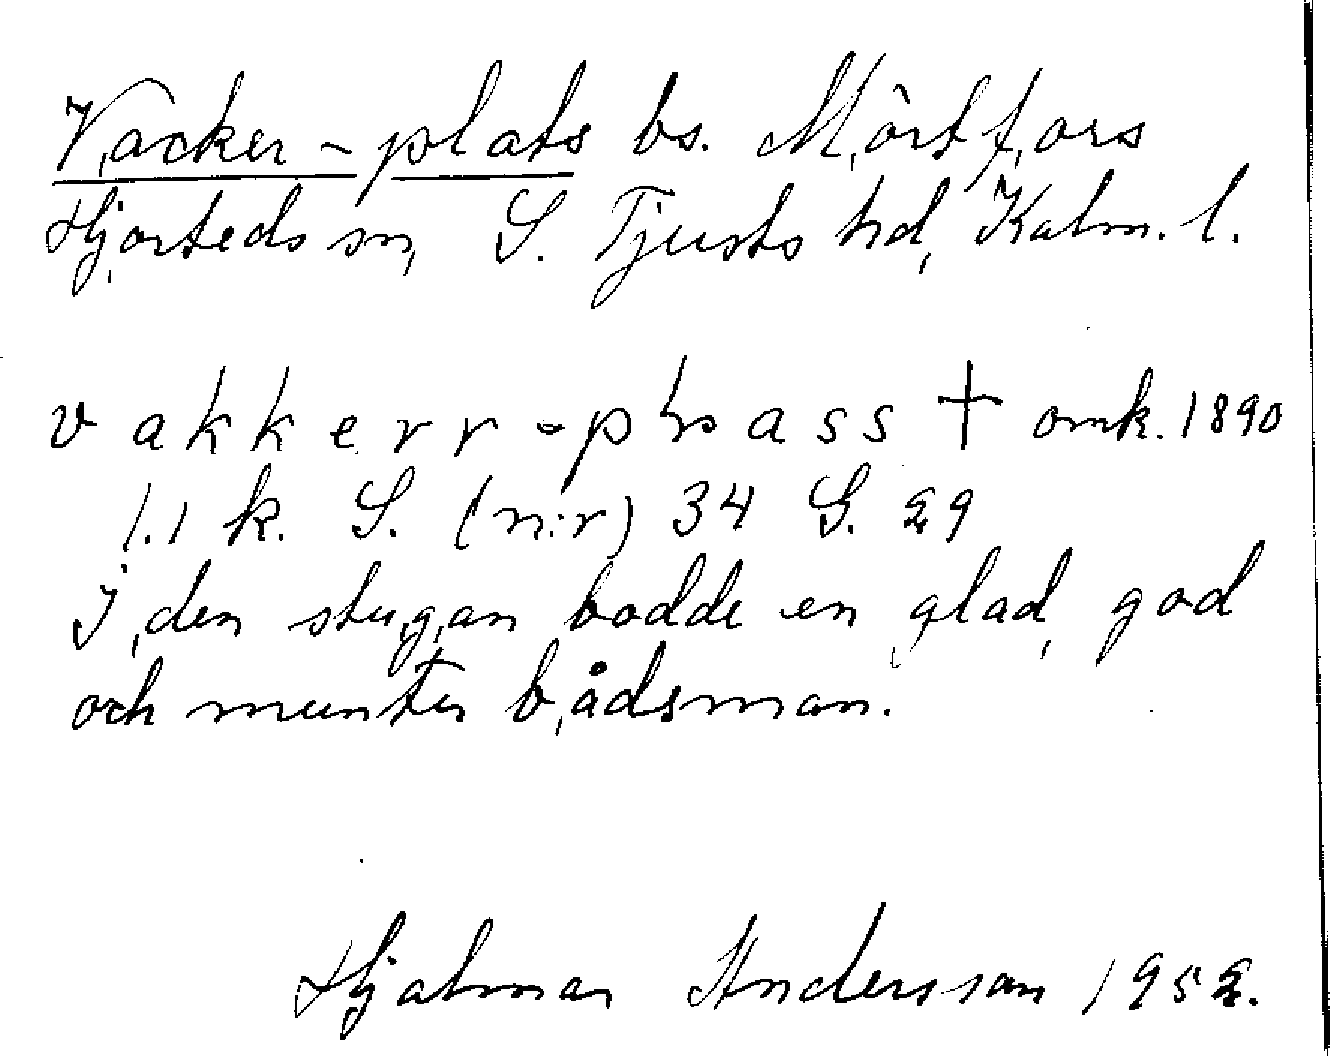 Vacker-plats bs. Mörtfors
Hjorteds sn, S. Tjusts hd, Kalm. l.
vakkerr-plass † omk. 1890
1.1 k. S. (n:r) 34 G. 29
I den stugan bodde en glad, god
och munter bådsman.
Hjalmar Andersson 1952.